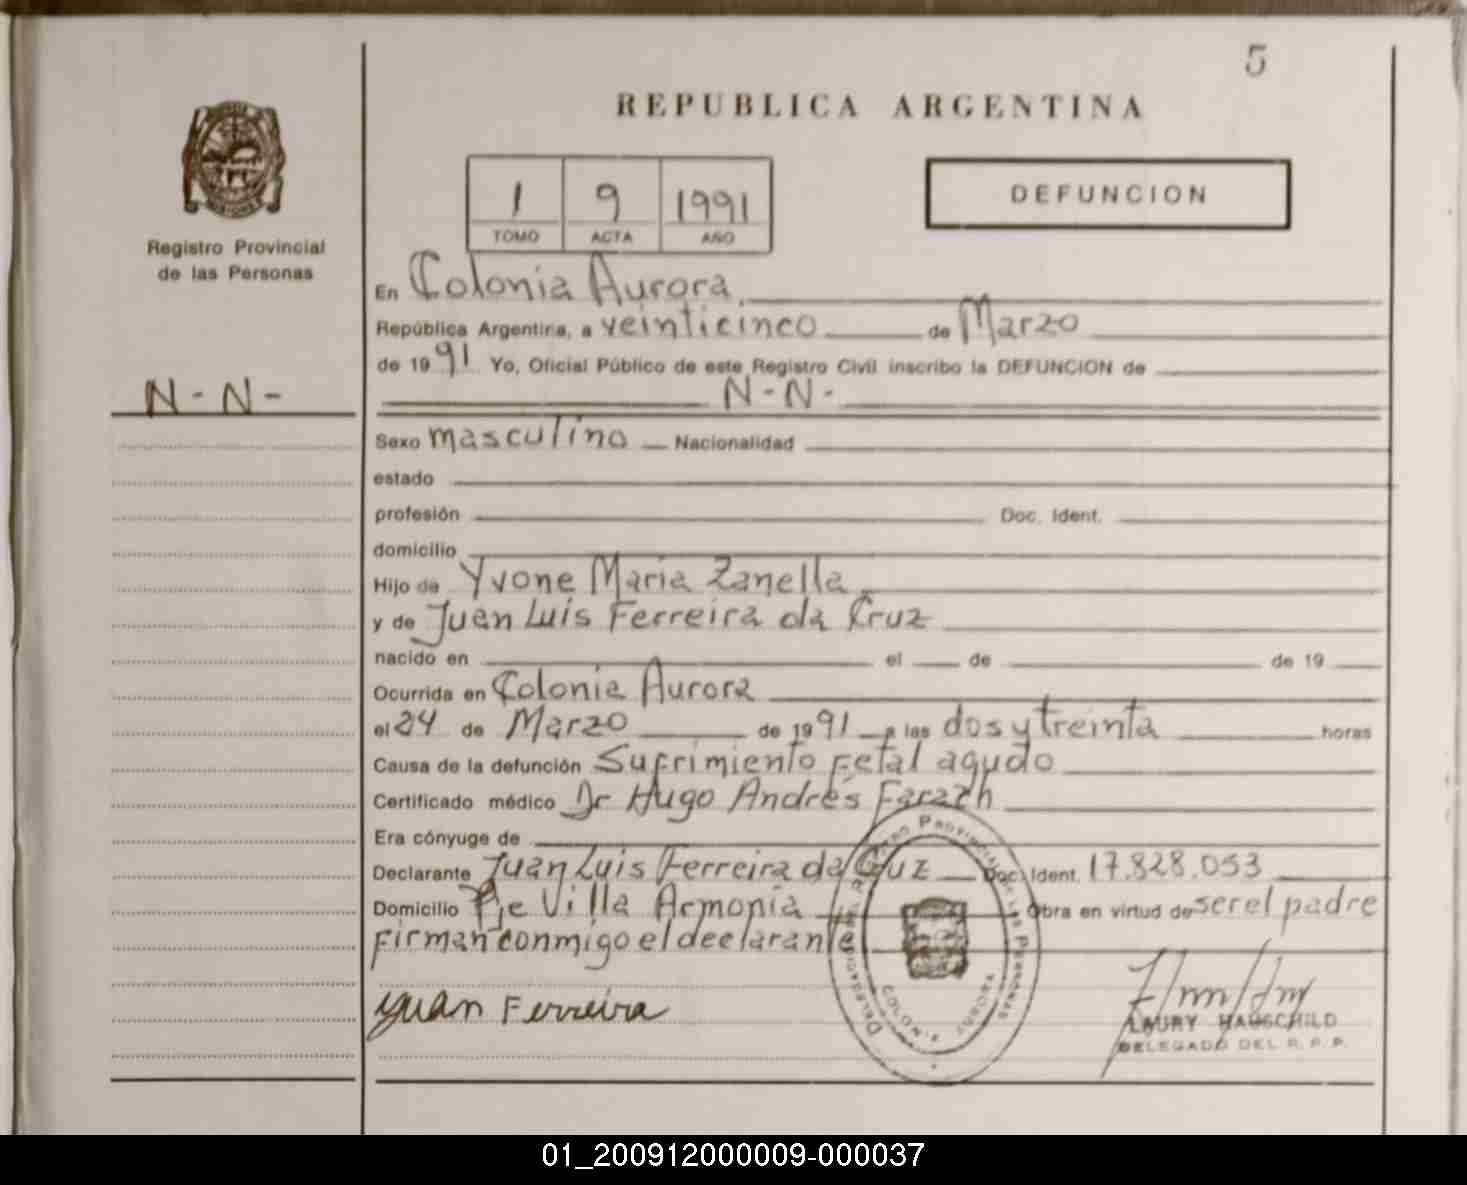 5
REPUBLICA ARGENTINA
1 9 1991
TOMO ACTA AÑO
DEFUNCION
Registro Provincial
de las Personas
En Colonia Aurora
República Argentina, a veinticinco de Marzo
de 1991 Yo, Oficial Público de este Registro Civil inscribo la DEFUNCION de
N-N-
N-N-
Sexo masculino Nacionalidad
estado
profesión Doc. Ident.
domicilio
Hijo de Yvone Maria Zanella
y de Juan Luis Ferreira da Cruz
nacido en el de de 19
Ocurrida en Colonia Aurora
el 24 de Marzo de 1991 a las dos y treinta horas
Causa de la defunción Sufrimiento Fetal agudo
Certificado médico Dr Hugo Andrés Farach
Era cónyuge de
Declarante Juan Luis Ferreira da Cruz Doc. Ident. 17.828.053
Domicilio Pje Villa Armonia Obra en virtud de ser el padre
Firman conmigo el declarante
Juan Ferreira
DELEGACION DEL REGISTRO PROVINCIAL DE LAS PERSONAS
COLONIA AURORA
LAURY HAUSCHILD
DELEGADO DEL R. P. P.
01_200912000009-000037